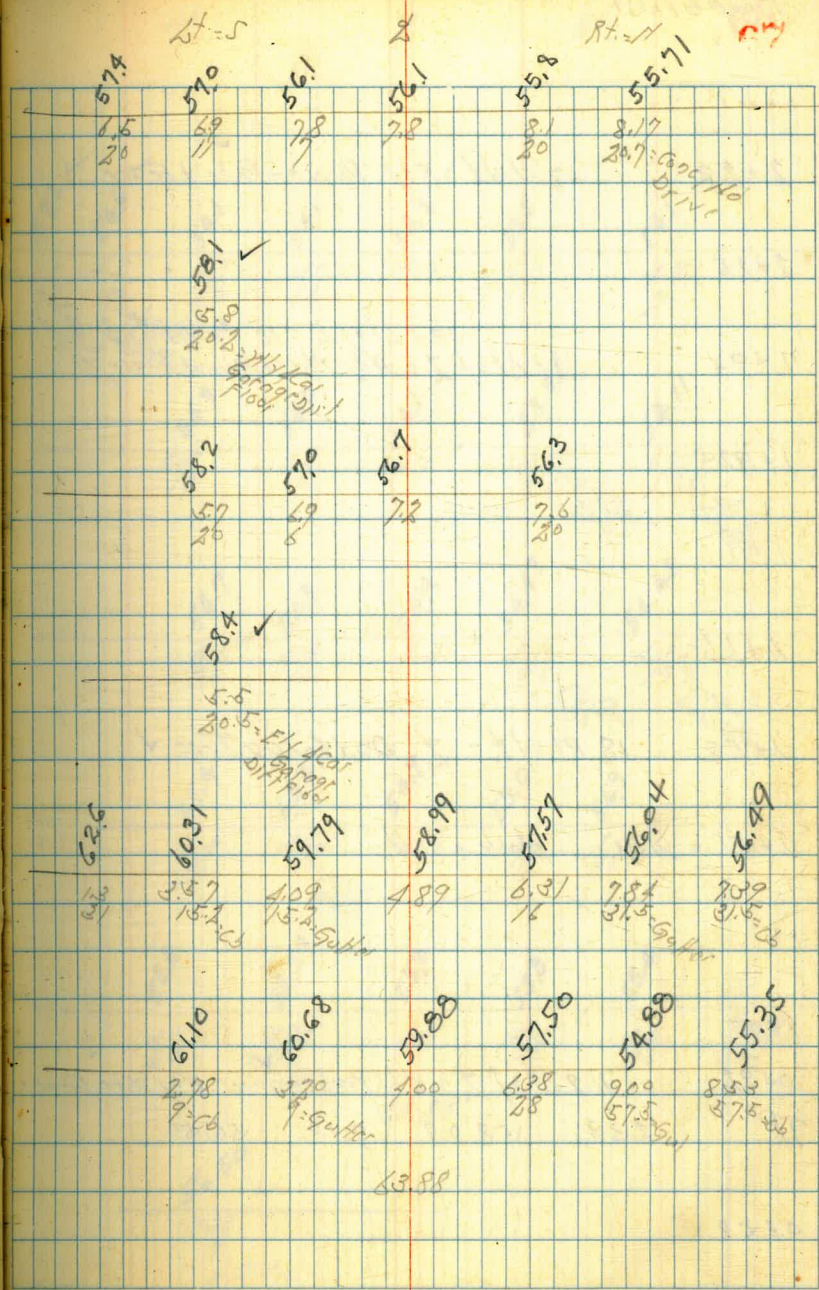 Lt = S ℄ Rt. = N
57.4 57.0 56.1 56.1 55.8 55.71
6.5 6.9 7.8 7.8 8.1 8.17
20 11 7 20 20.7 = Conc
Drive
58.1 ✓
5.8
20.2 = Wly 4 Car
Garage Dirt
Floor
58.2 57.0 56.7 56.3
5.7 6.9 7.2 7.6
20 6 20
58.4 ✓
5.5
20.5 = Ely 4 Car
Garage
Dirt Floor
62.6 60.31 59.79 58.99 57.57 56.04 56.49
1.3 3.57 4.09 4.89 6.31 7.84 7.39
15.2 = Cb 15.2 = Gutter 16 31.5 = Gutter 31.5 = Cb
61.10 60.68 59.88 57.50 54.88 55.35
2.78 3.20 4.00 6.38 9.00 8.53
9 = Cb 9 = Gutter 28 57.5 = Gut 57.5 = Cb
63.88